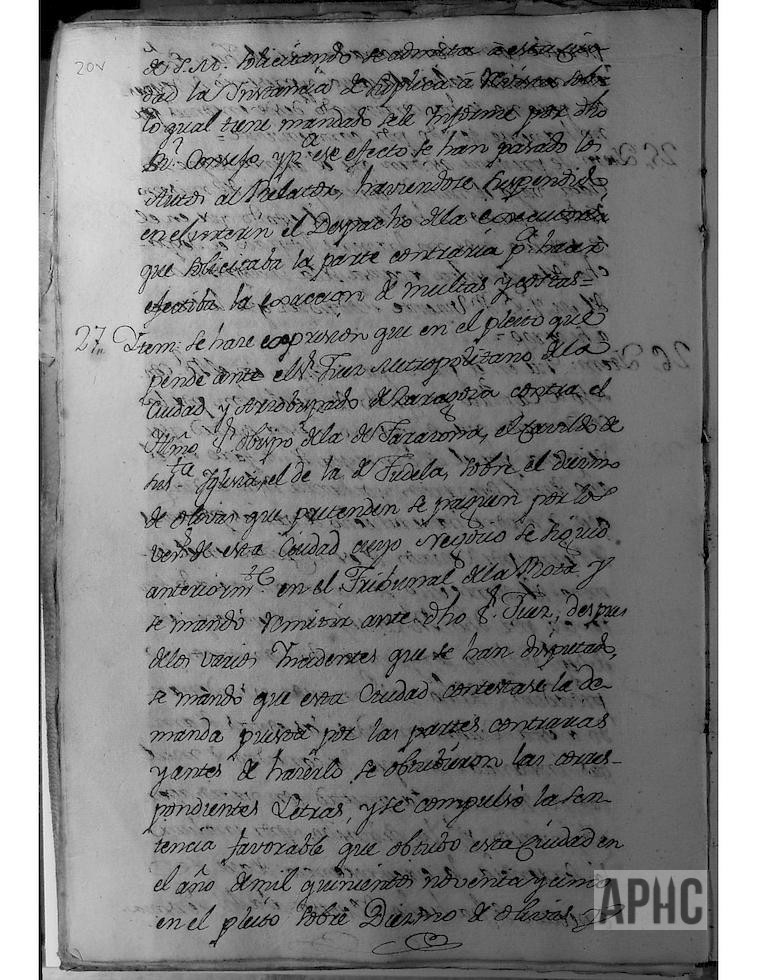 20v
de S.M. solicitando se admita â esta Ciu-
dad la Instancia de suplica â Revista sobre
lo qual tiene mandado se le Informe por dho
Rl. Consejo, y pa. ese efecto se han pasado los
Autos al Relator, haviendose suspendido
en el interin el Despacho de la executoria
que solicitaba la parte contraria pa. hacer
efectiba la exaccion de multas y costas=
27,, Item: se hace expresion que en el pleito que
pende ante el Sr. Juez Metropolitano de la
Ciudad y Arzobispado de Zaragoza contra el
Illmo. Sr. Obispo de la de Tarazona, el Cavildo de
sus ta Iglesia, el de la de Tudela, sobre el diezmo
de olivas que pretenden se paguen por los
vezs. de esta Ciudad cuyo Negocio se siguió
anteriormte. en el Tribunal de la Rota y
se mandó remitir ante dho Sr. Juez, despues
de los varios Incidentes que se han disputado,
se mandó que esta Ciudad contestase la de-
manda puesta por las partes contrarias
y antes de hacerlo se obtubieron las corres-
pondientes Letras, y se compulsó la Sen-
tencia favorable que obtubo esta Ciudad en
el año de mil quinientos noventa y cinco
en el pleito sobre Diezmo de olivas
APHC